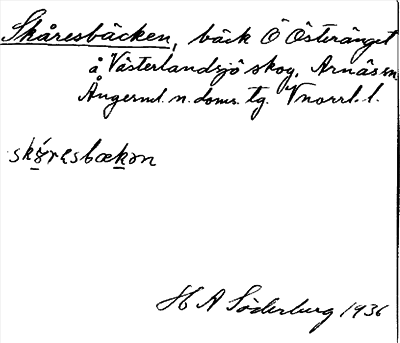 Skåresbäcken, bäck Ö Österänget
å Västerlandsjö skog, Arnäs sn
Ångerml. n. doms. tg. Vnorrl. l.
H A Söderburg 1936